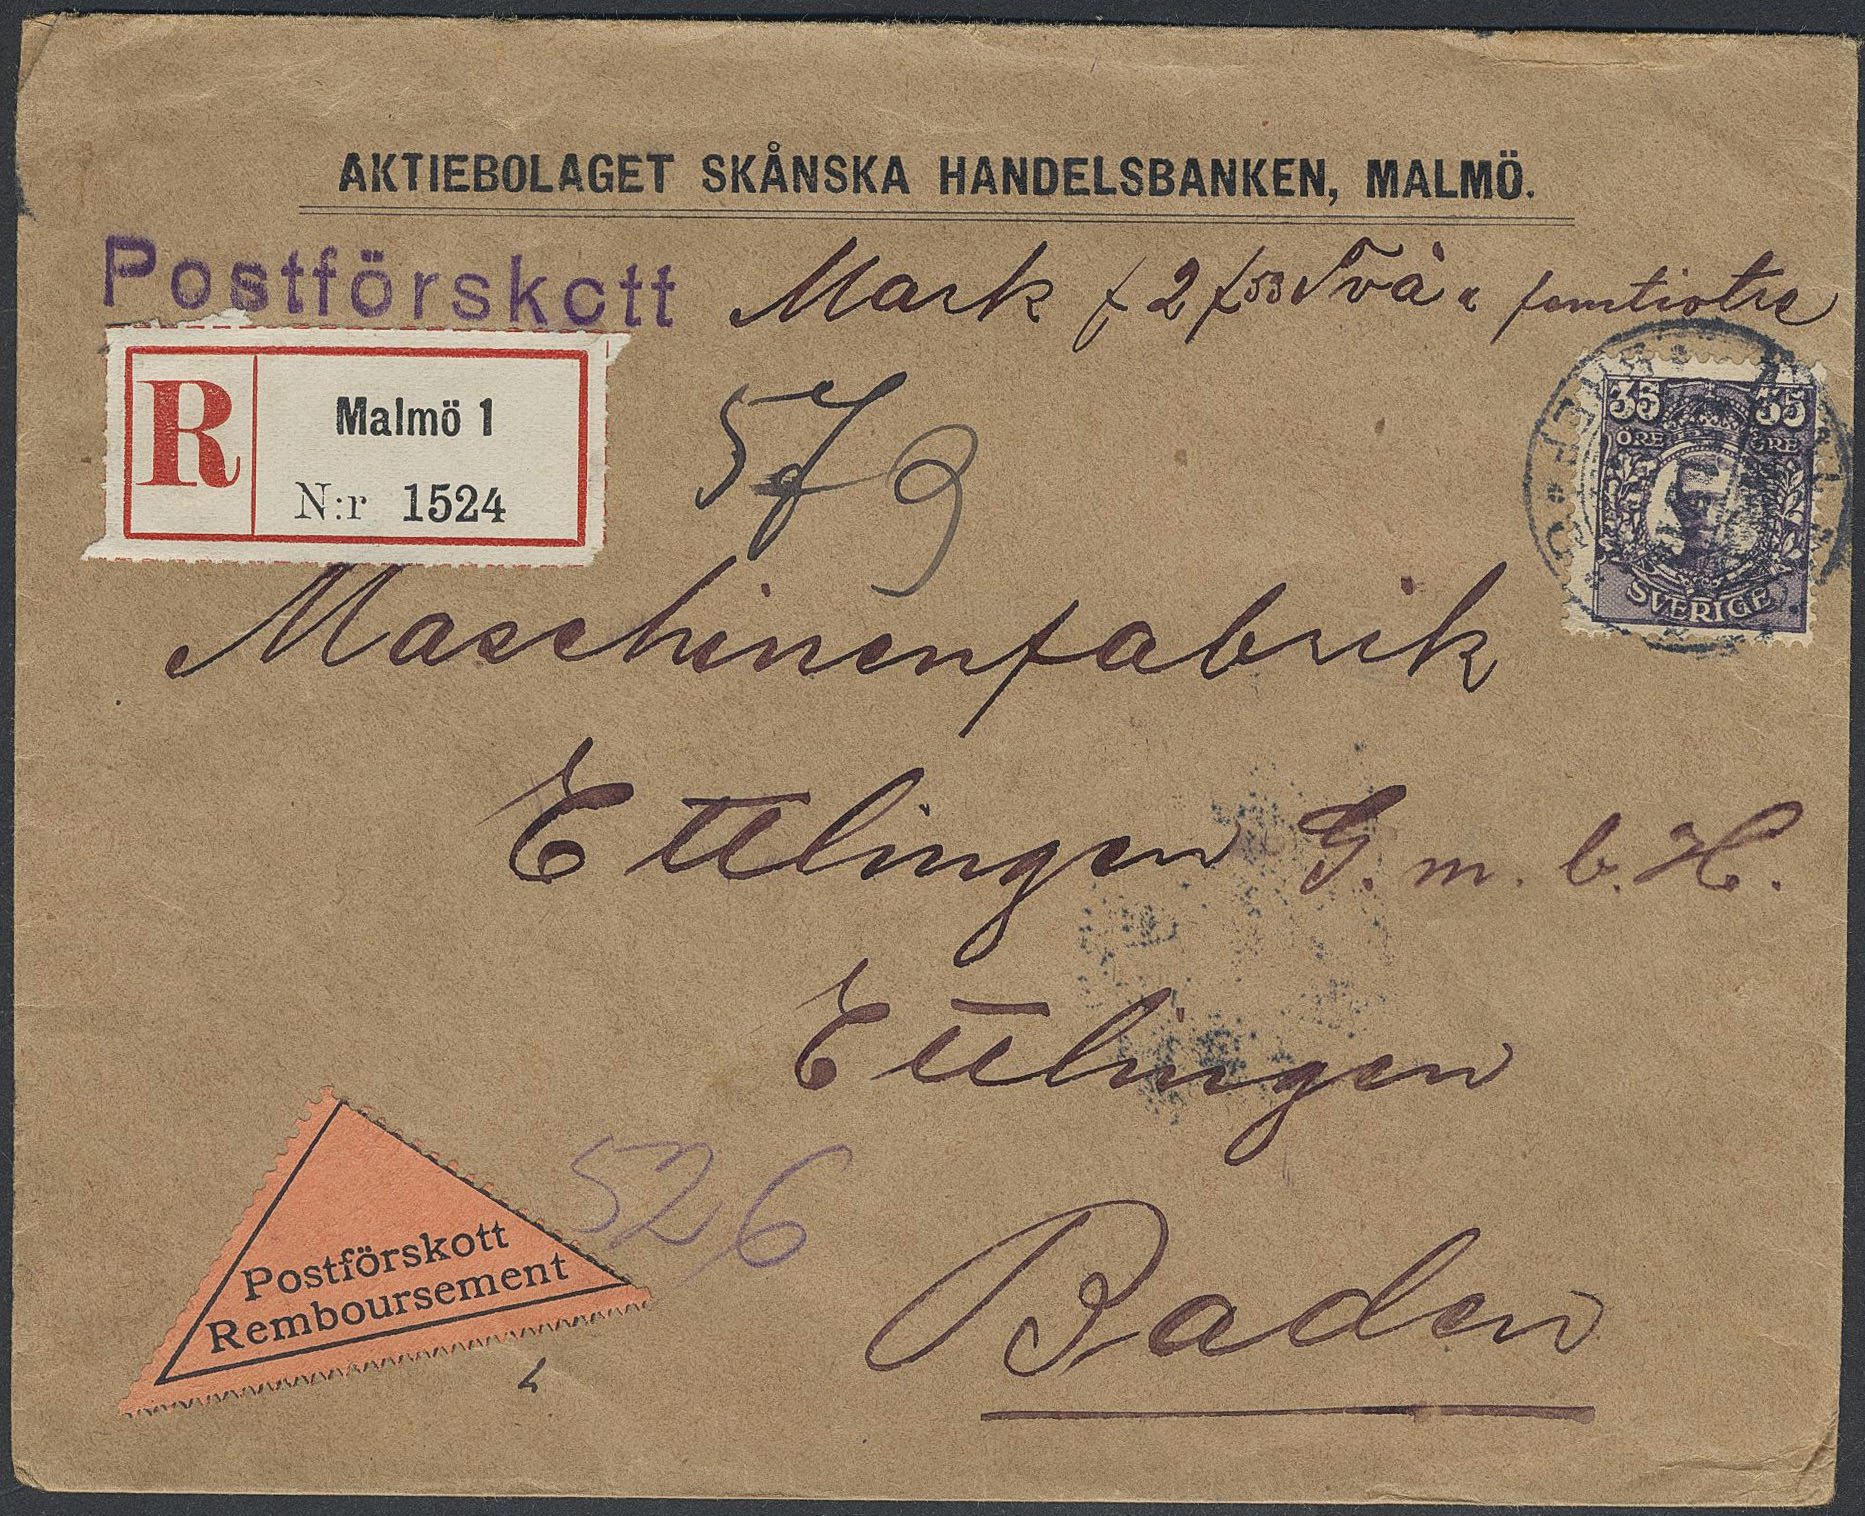 AKTIEBOLAGET SKÅNSKA HANDELSBANKEN, MALMÖ.
Postförskott Mark f 2 f 53 Två & femtiotre
R Malmö 1
N:r 1524
35 35
ÖRE ÖRE
SVERIGE
Maschinenfabrik
Ettlingen G. m. b. H.
Ettlingen
Baden
526
Postförskott
Remboursement